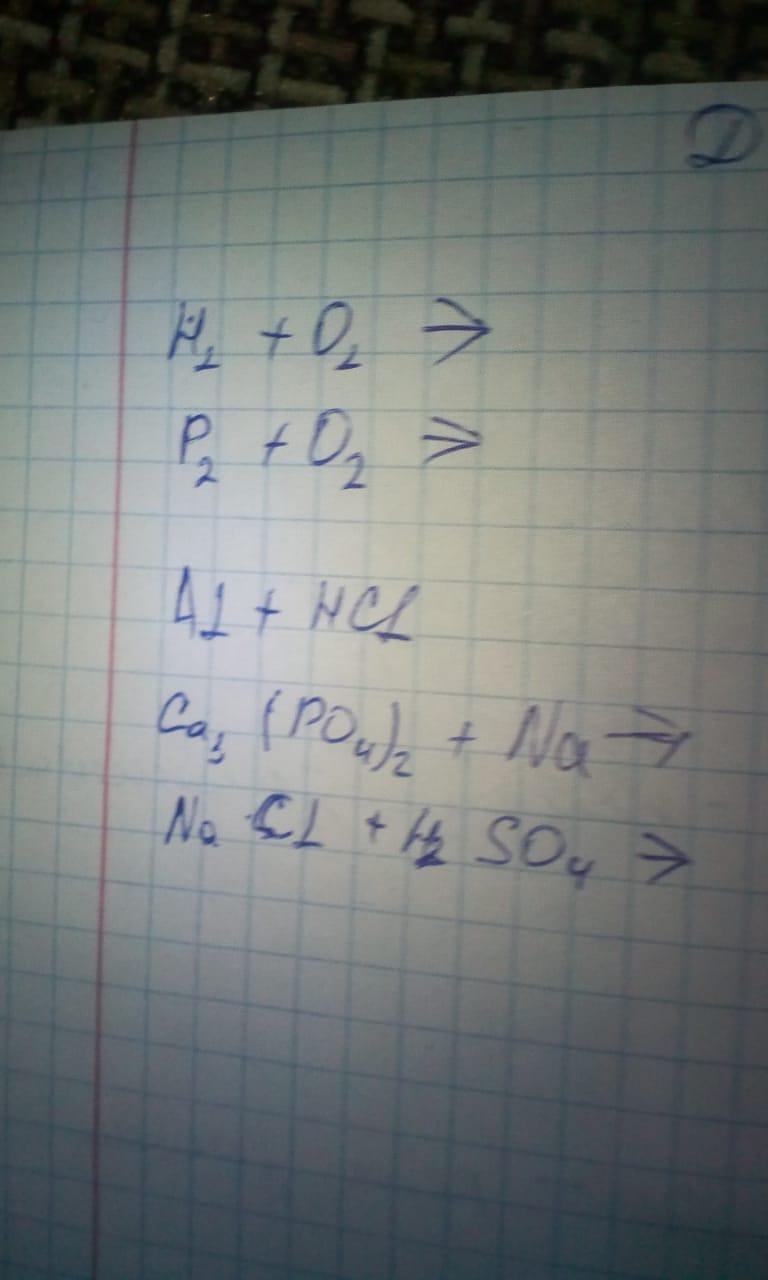 D
H₂ + O₂ →
P₂ + O₂ →
Al + HCl
Ca₃ (PO₄)₂ + Na →
Na Cl + H₂ SO₄ →